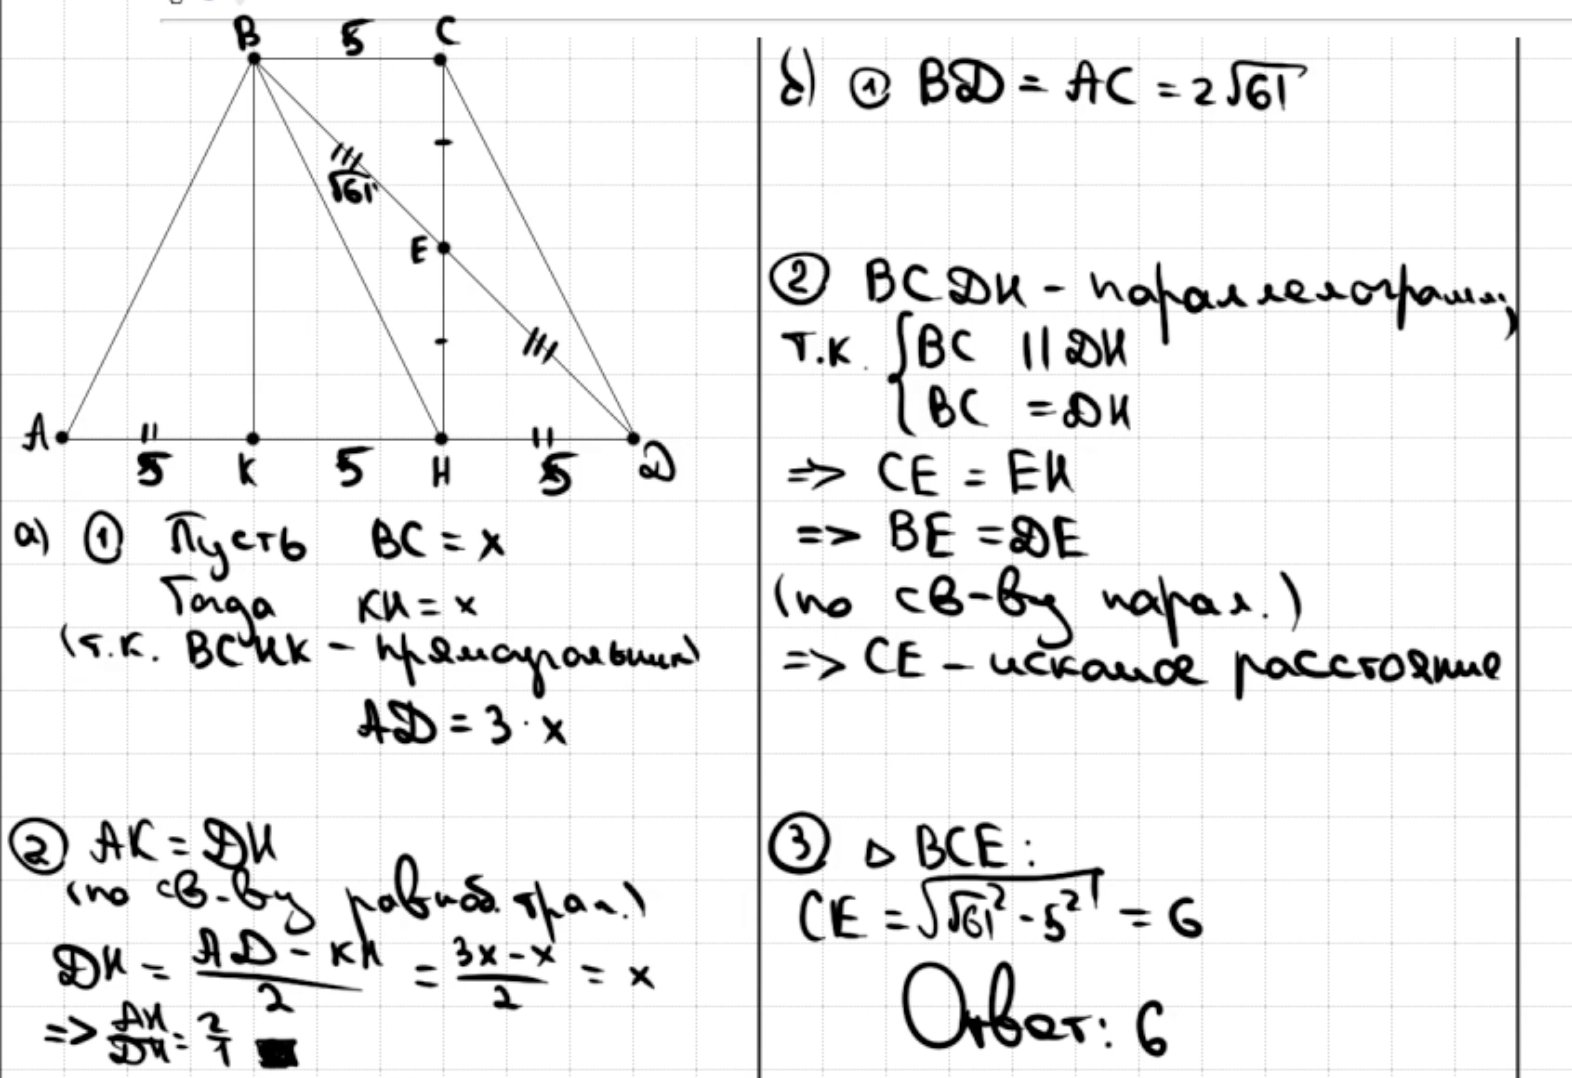 B 5 C
√61
E
A 5 K 5 H 5 D
а) ① Пусть BC = x
Тогда KH = x
(т.к. BCHK - прямоугольник)
AD = 3 · x
② AK = DH
(по св-ву равноб. трап.)
DH = (AD - KH)/2 = (3x - x)/2 = x
=> AH/DH = 2/1
б) ① BD = AC = 2√61
② BCDH - параллелограмм,
т.к. { BC || DH
BC = DH
=> CE = EH
=> BE = DE
(по св-ву парал.)
=> CE - искомое расстояние
③ △ BCE:
CE = √(√61² - 5²) = 6
Ответ: 6